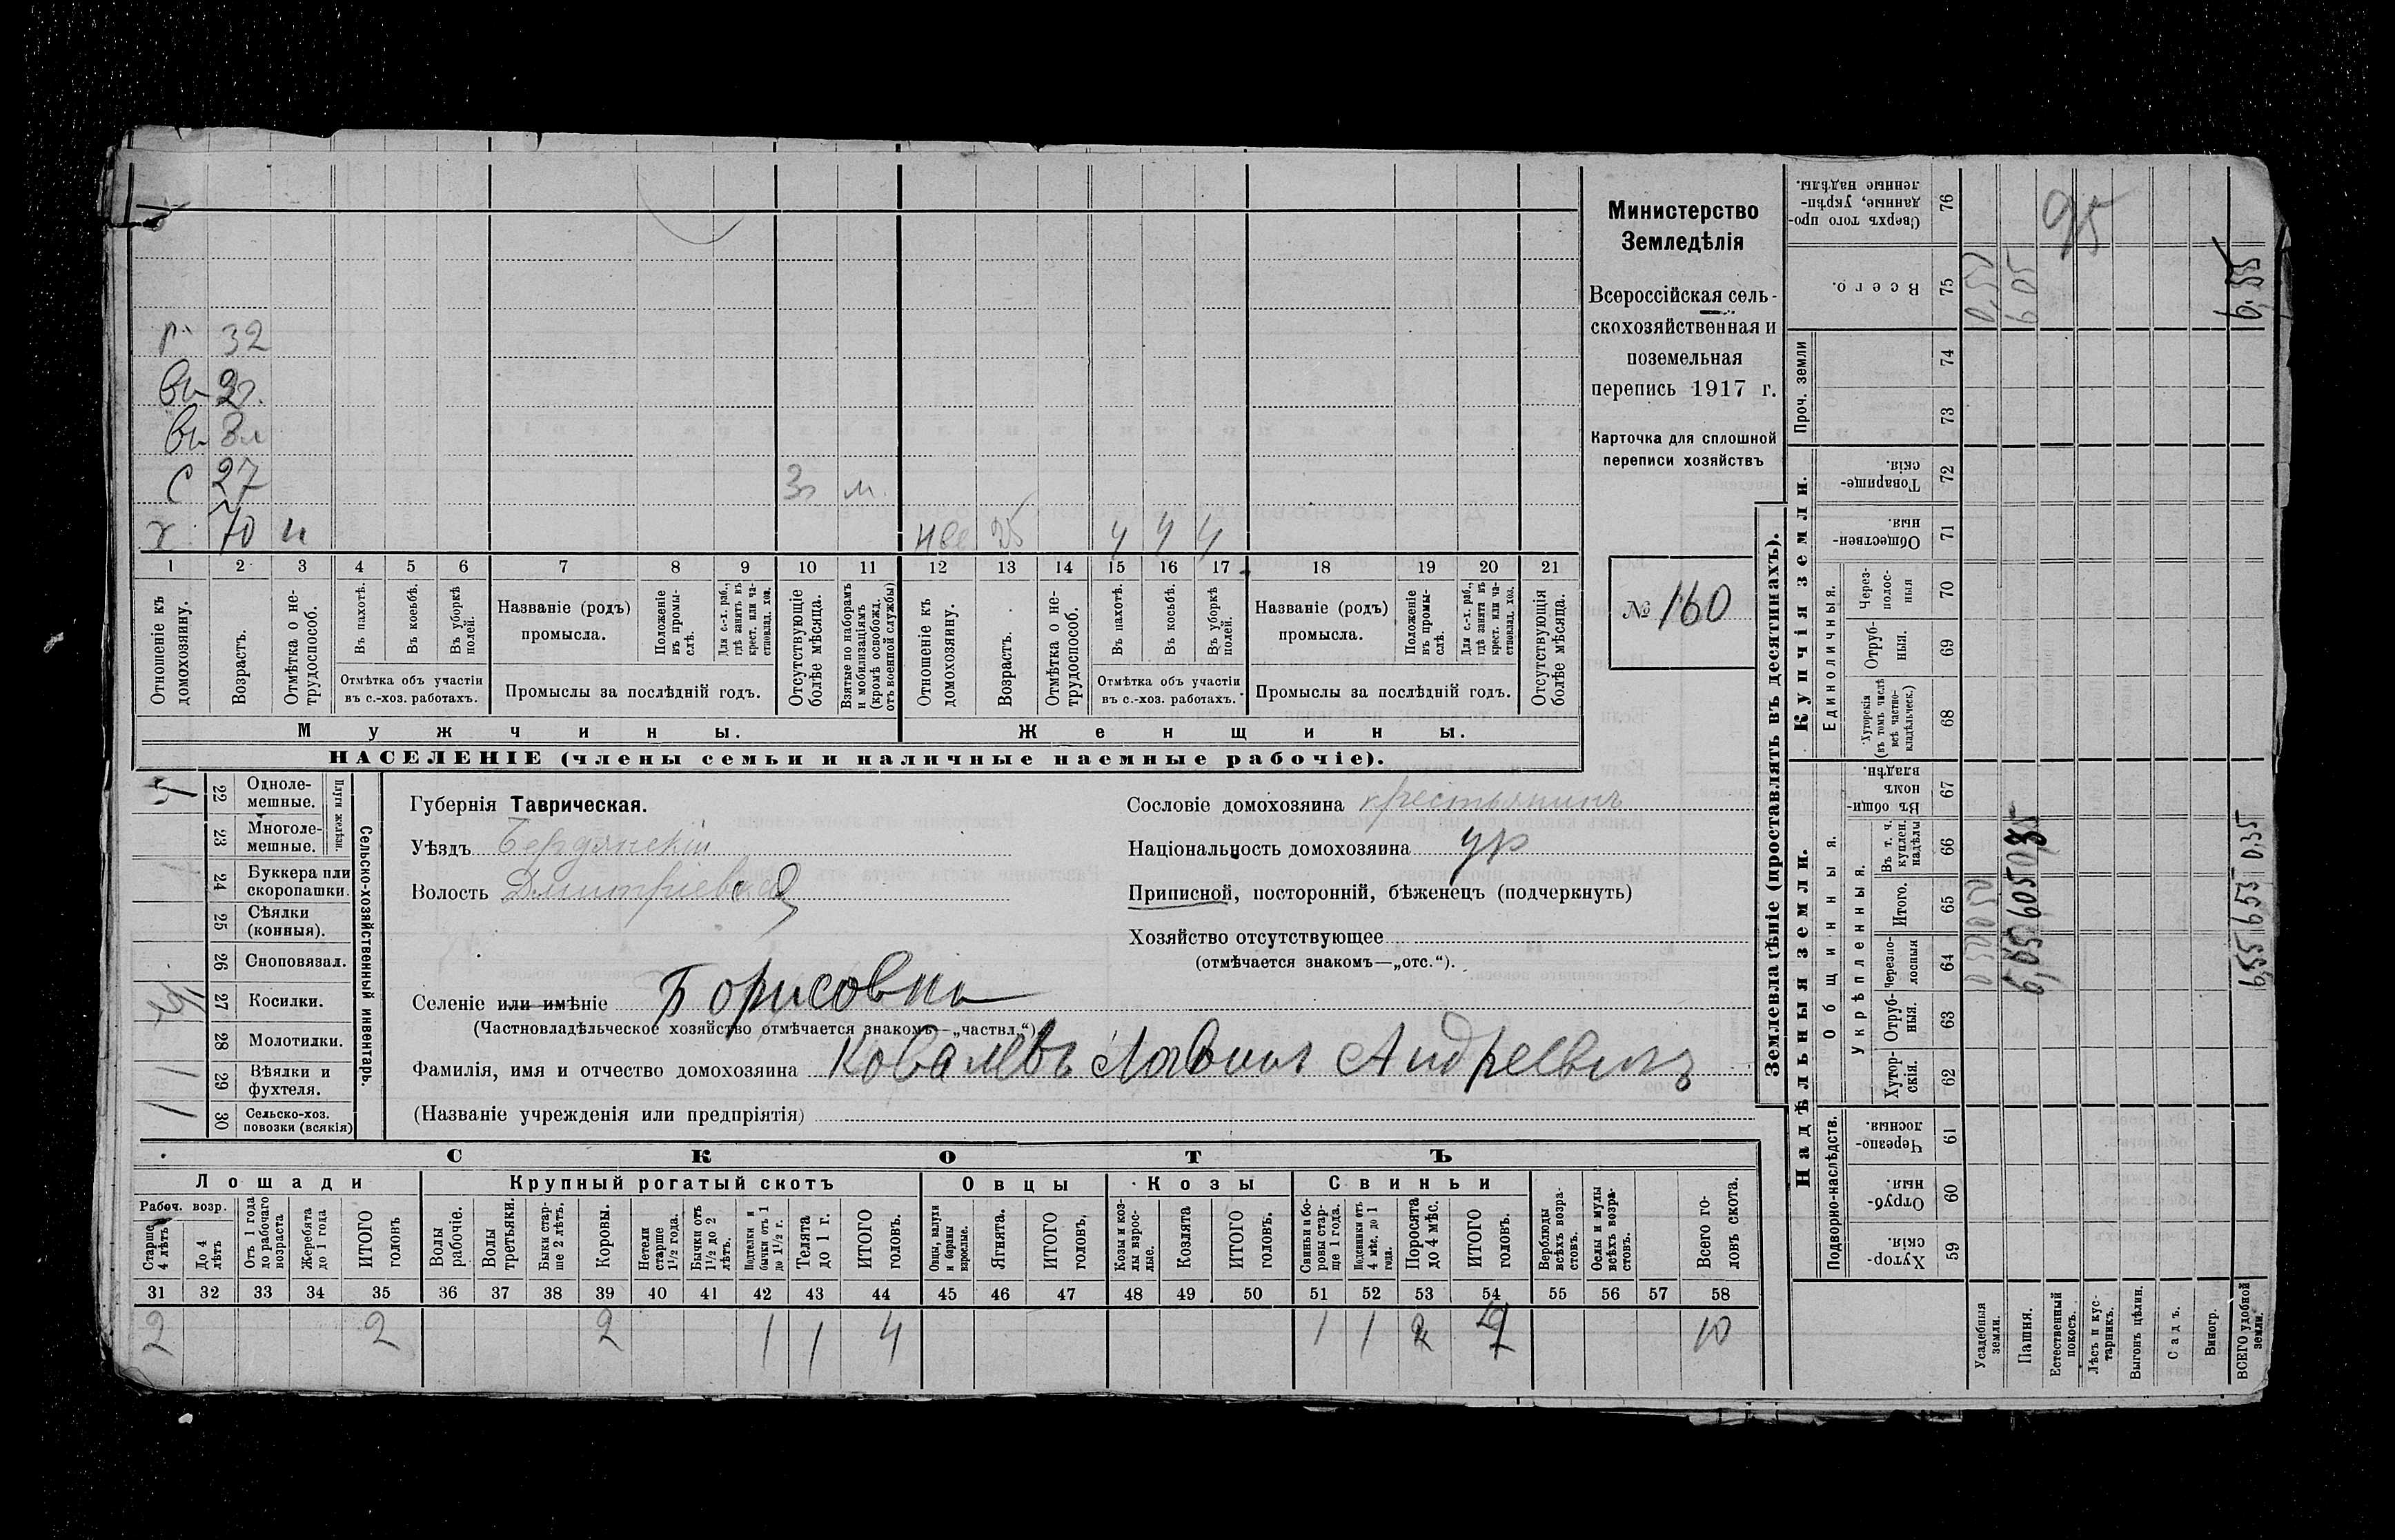 г 32
вн 2г.
вн 3л
с 27 3г м.
х 70 н нев 25 ч ч ч
1 2 3 4 5 6 7 8 9 10 11 12 13 14 15 16 17 18 19 20 21
Отношеніе къ домохозяину.
Возрастъ.
Отмѣтка о нетрудоспособ.
Въ пахотѣ.
Въ косьбѣ.
Въ уборкѣ полей.
Отмѣтка объ участіи въ с.-хоз. работахъ.
Названіе (родъ) промысла.
Положеніе въ промыслѣ.
Для с.-х. раб., гдѣ занятъ въ крест. или частновлад. хоз.
Промыслы за послѣдній годъ.
Отсутствующіе болѣе мѣсяца.
Взятые по наборамъ и мобилизаціямъ (кромѣ освобожд. отъ военной службы)
Отношеніе къ домохозяину.
Возрастъ.
Отмѣтка о нетрудоспособ.
Въ пахотѣ.
Въ косьбѣ.
Въ уборкѣ полей.
Отмѣтка объ участіи въ с.-хоз. работахъ.
Названіе (родъ) промысла.
Положеніе въ промыслѣ.
Для с.-х. раб., гдѣ занята въ крест. или частновлад. хоз.
Промыслы за послѣдній годъ.
Отсутствующія болѣе мѣсяца.
Мужчины. Женщины.
НАСЕЛЕНІЕ (члены семьи и наличные наемные рабочіе).
Министерство
Земледѣлія
Всероссійская сель-
скохозяйственная и
поземельная
перепись 1917 г.
Карточка для сплошной
переписи хозяйствъ
№ 160
Сельско-хозяйственный инвентарь.
Плуги желѣзн.
22 Одноле-
мешные.
23 Многоле-
мешные.
1 24 Буккера или
скоропашки.
25 Сѣялки
(конныя).
26 Сноповязал.
27 Косилки.
28 Молотилки.
1 29 Вѣялки и
фухтеля.
1 30 Сельско-хоз.
повозки (всякія)
Губернія Таврическая.
Уѣздъ Бердянскій
Волость Дмитріевская
Селеніе или имѣніе Борисовка
(Частновладѣльческое хозяйство отмѣчается знакомъ—„частвл.“)
Фамилія, имя и отчество домохозяина Ковалевъ Андреевичъ
(Названіе учрежденія или предпріятія)
Сословіе домохозяина крестьянинъ
Національность домохозяина ур
Приписной, посторонній, бѣженецъ (подчеркнуть)
Хозяйство отсутствующее
(отмѣчается знакомъ—„отс.“).
СКОТЪ
Лошади Крупный рогатый скотъ Овцы Козы Свиньи
Рабоч. возр.
Старше 4 лѣтъ
До 4 лѣтъ
Отъ 1 года до рабочаго возраста
Жеребята до 1 года
ИТОГО головъ
Волы рабочіе.
Волы третьяки.
Быки старше 2 лѣтъ.
Коровы.
Нетели старше 1½ года.
Бычки отъ 1½ до 2 лѣтъ.
Подтелки и бычки отъ 1 до 1½ г.
Телята до 1 г.
ИТОГО головъ.
Овцы, валухи и бараны взрослые.
Ягнята.
ИТОГО головъ.
Козы и козлы взрослые.
Козлята
ИТОГО головъ.
Свиньи и боровы старше 1 года.
Подсвинки отъ 4 мѣс. до 1 года.
Поросята до 4 мѣс.
ИТОГО головъ.
Верблюды всѣхъ возрастовъ.
Ослы и мулы всѣхъ возрастовъ.
Всего головъ скота.
31 32 33 34 35 36 37 38 39 40 41 42 43 44 45 46 47 48 49 50 51 52 53 54 55 56 57 58
2 2 2 1 1 4 1 1 2 4 10
Землевладѣніе (проставлять въ десятинахъ).
Надѣльныя земли.
Купчія земли.
Проч. земли
Подворно-наслѣдств.
Общинныя.
Укрѣпленныя.
Единоличныя.
Сверхъ того проданные, укрѣпленные надѣлы. 76
Всего. 75 0,50 6 05 6,55
74
73
Товарищескія. 72
Общественныя. 71
Черезполосныя 70
Отрубныя. 69
Хуторскія (въ томъ числѣ всѣ частновладѣльческ.) 68
Въ общинномъ владѣн. 67
Въ т. ч. куплен. надѣлы 66 0,35
Итого. 65 0 50 6 05 6 55
Черезполосныя 64 0 50 6,05 6,55
Отрубныя. 63
Хуторскія. 62
Черезполосныя. 61
Отрубныя. 60
Хуторскія. 59
Усадебныя земли.
Пашня.
Естественный покосъ.
Лѣсъ и кустарникъ.
Выгонъ цѣлин.
Садъ.
Виногр.
ВСЕГО удобной земли.
95